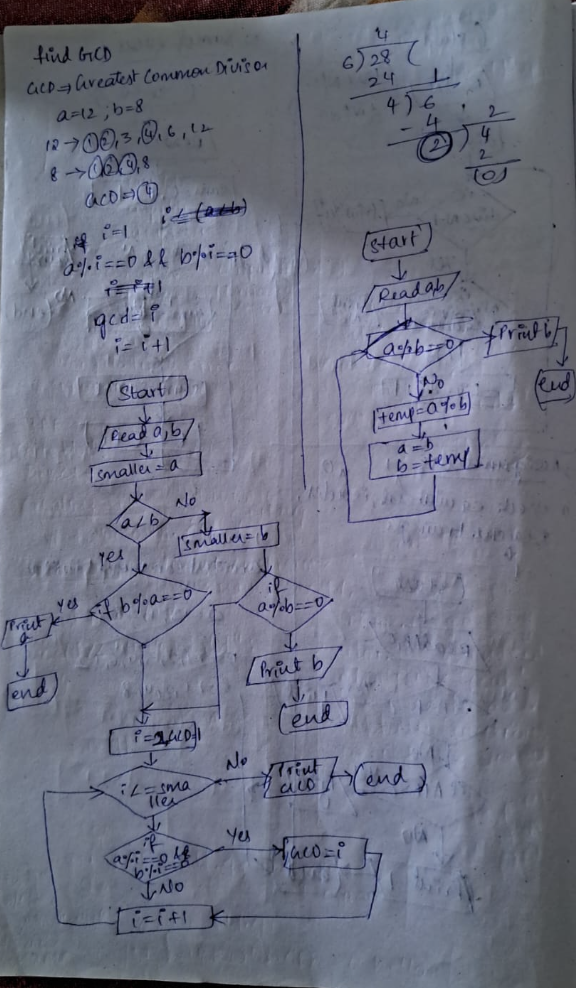 find GCD
GCD => Greatest Common Divisor
a=12 ; b=8
12 → 1, 2, 3, 4, 6, 12
8 → 1, 2, 4, 8
GCD => 4
i=1
a%i==0 && b%i==0
gcd = i
i = i+1
Start
Read a, b
smaller = a
a<b
No
smaller = b
yes
if b%a==0
yes
Print a
end
if
a%b==0
Print b
end
GCD=1
i<=sma
ller
No
Print
GCD
end
if
a%i==0 &&
b%i==0
Yes
GCD=i
No
i=i+1
4
6)28(
24
1
4)6
-4
2
2)4
(0)
Start
Read a,b
a%b==0
Print b
end
No
temp=a%b
a=b
b=temp